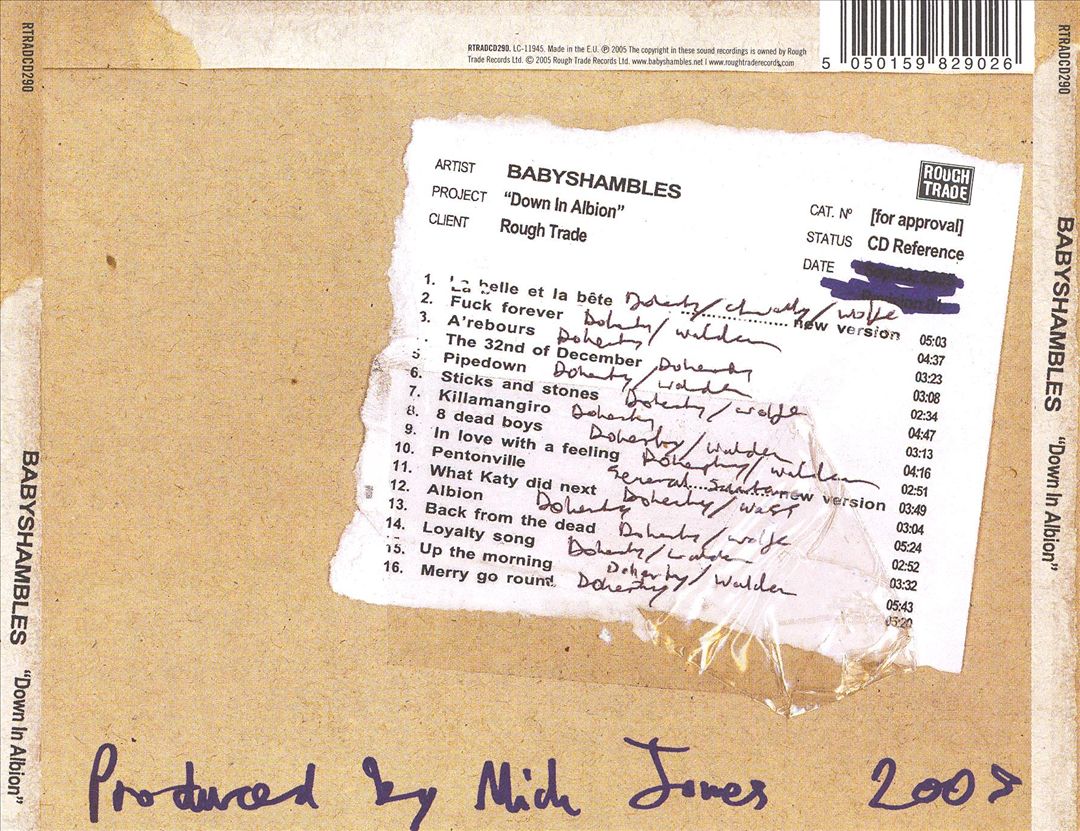 RTRADCD290
RTRADCD290. LC-11945. Made in the E.U. ℗ 2005 The copyright in these sound recordings is owned by Rough
Trade Records Ltd. © 2005 Rough Trade Records Ltd. www.babyshambles.net | www.roughtraderecords.com
5 050159 829026
RTRADCD290
ROUGH
TRADE
ARTIST BABYSHAMBLES
PROJECT “Down In Albion”
CLIENT Rough Trade
CAT. Nº [for approval]
STATUS CD Reference
DATE
1. La belle et la bête Doherty / / Wolfe 05:03
2. Fuck forever Doherty / Walden ................ new version 04:37
3. A'rebours Doherty / Walden 03:23
The 32nd of December Doherty 03:08
5 Pipedown Doherty / Walden 02:34
6. Sticks and stones Doherty / Wolfe 04:47
7. Killamangiro Doherty 03:13
8. 8 dead boys Doherty / Walden 04:16
9. In love with a feeling Doherty / Walden 02:51
10. Pentonville General .... Santana new version 03:49
11. What Katy did next Doherty / Wass 03:04
12. Albion Doherty 05:24
13. Back from the dead Doherty / Wolfe 02:52
14. Loyalty song Doherty / Walden 03:32
15. Up the morning Doherty / Walden 05:43
16. Merry go round Doherty 05:20
BABYSHAMBLES “Down In Albion”
BABYSHAMBLES “Down In Albion”
Produced by Mick Jones 2005